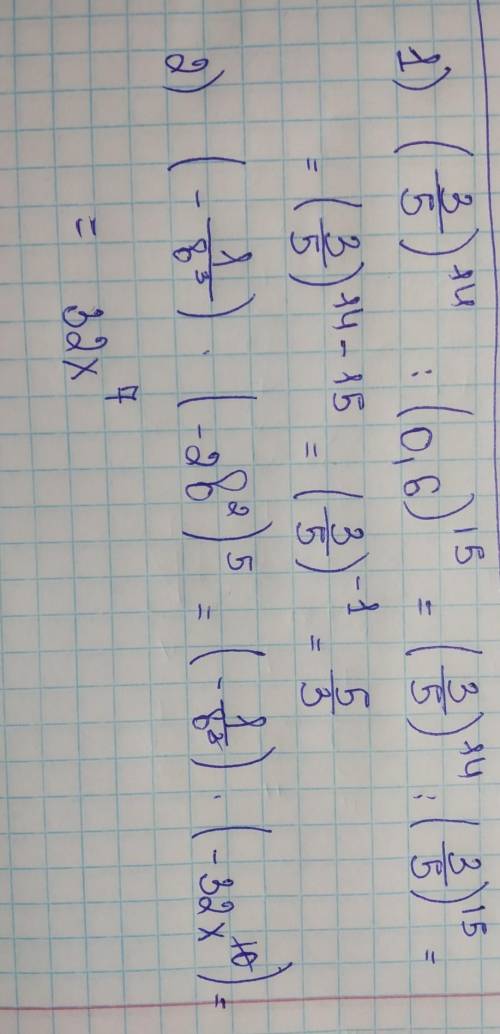 1) (3/5)^14 : (0,6)^15 = (3/5)^14 : (3/5)^15 =
= (3/5)^14-15 = (3/5)^-1 = 5/3
2) (-1/8^3) · (-2b^2)^5 = (-1/8^3) · (-32x^10) =
= 32x^7